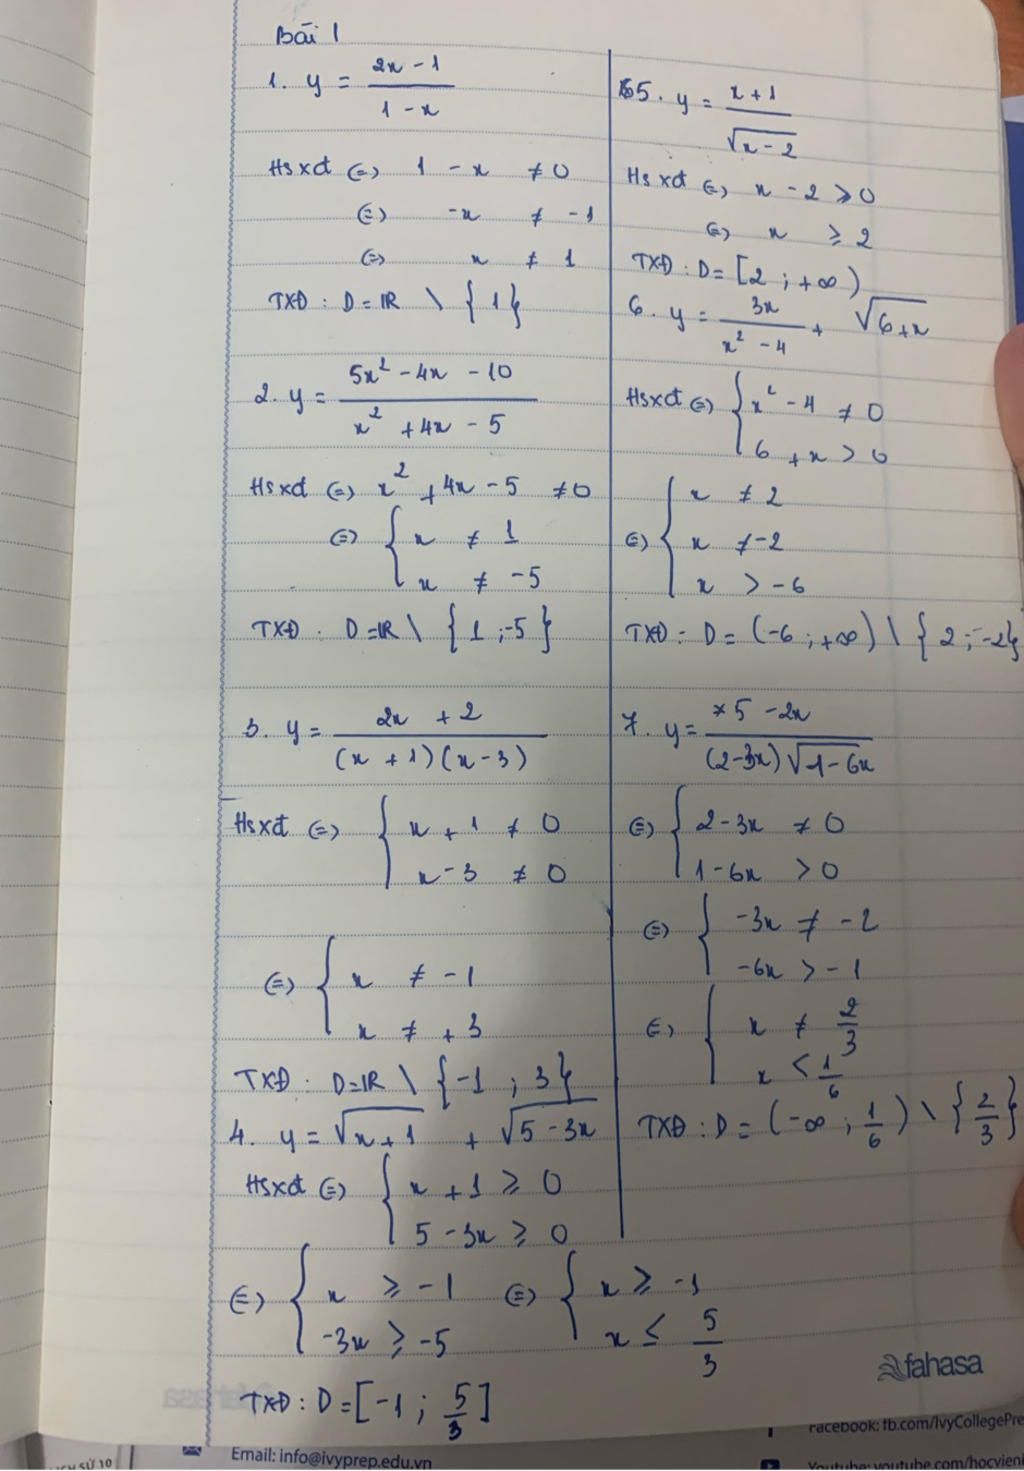 Bài 1
1. y = (2x - 1)/(1 - x)
Hsxđ ⇔ 1 - x ≠ 0
⇔ -x ≠ -1
⇔ x ≠ 1
TXĐ : D = ℝ \ {1}
2. y = (5x² - 4x - 10)/(x² + 4x - 5)
Hsxđ ⇔ x² + 4x - 5 ≠ 0
⇔ { x ≠ 1
x ≠ -5
TXĐ : D = ℝ \ {1 ; -5}
3. y = (2x + 2)/((x + 1)(x - 3))
Hsxđ ⇔ { x + 1 ≠ 0
x - 3 ≠ 0
⇔ { x ≠ -1
x ≠ +3
TXĐ : D = ℝ \ {-1 ; 3}
4. y = √(x + 1) + √(5 - 3x)
Hsxđ ⇔ { x + 1 ≥ 0
5 - 3x ≥ 0
⇔ { x ≥ -1 ⇔ { x ≥ -1
-3x ≥ -5 x ≤ 5/3
TXĐ : D = [-1 ; 5/3]
5. y = (x + 1)/√(x - 2)
Hsxđ ⇔ x - 2 ≥ 0
⇔ x ≥ 2
TXĐ : D = [2 ; +∞)
6. y = 3x/(x² - 4) + √(6 + x)
Hsxđ ⇔ { x² - 4 ≠ 0
6 + x > 0
⇔ { x ≠ 2
x ≠ -2
x > -6
TXĐ : D = (-6 ; +∞) \ {2 ; -2}
7. y = (5 - 2x)/((2 - 3x)√(1 - 6x))
⇔ { 2 - 3x ≠ 0
1 - 6x > 0
⇔ { -3x ≠ -2
-6x > -1
⇔ { x ≠ 2/3
x < 1/6
TXĐ : D = (-∞ ; 1/6) \ {2/3}
fahasa
SỬ 10
Email: info@ivyprep.edu.vn
Facebook: fb.com/IvyCollegePre
Youtube: youtube.com/hocvien